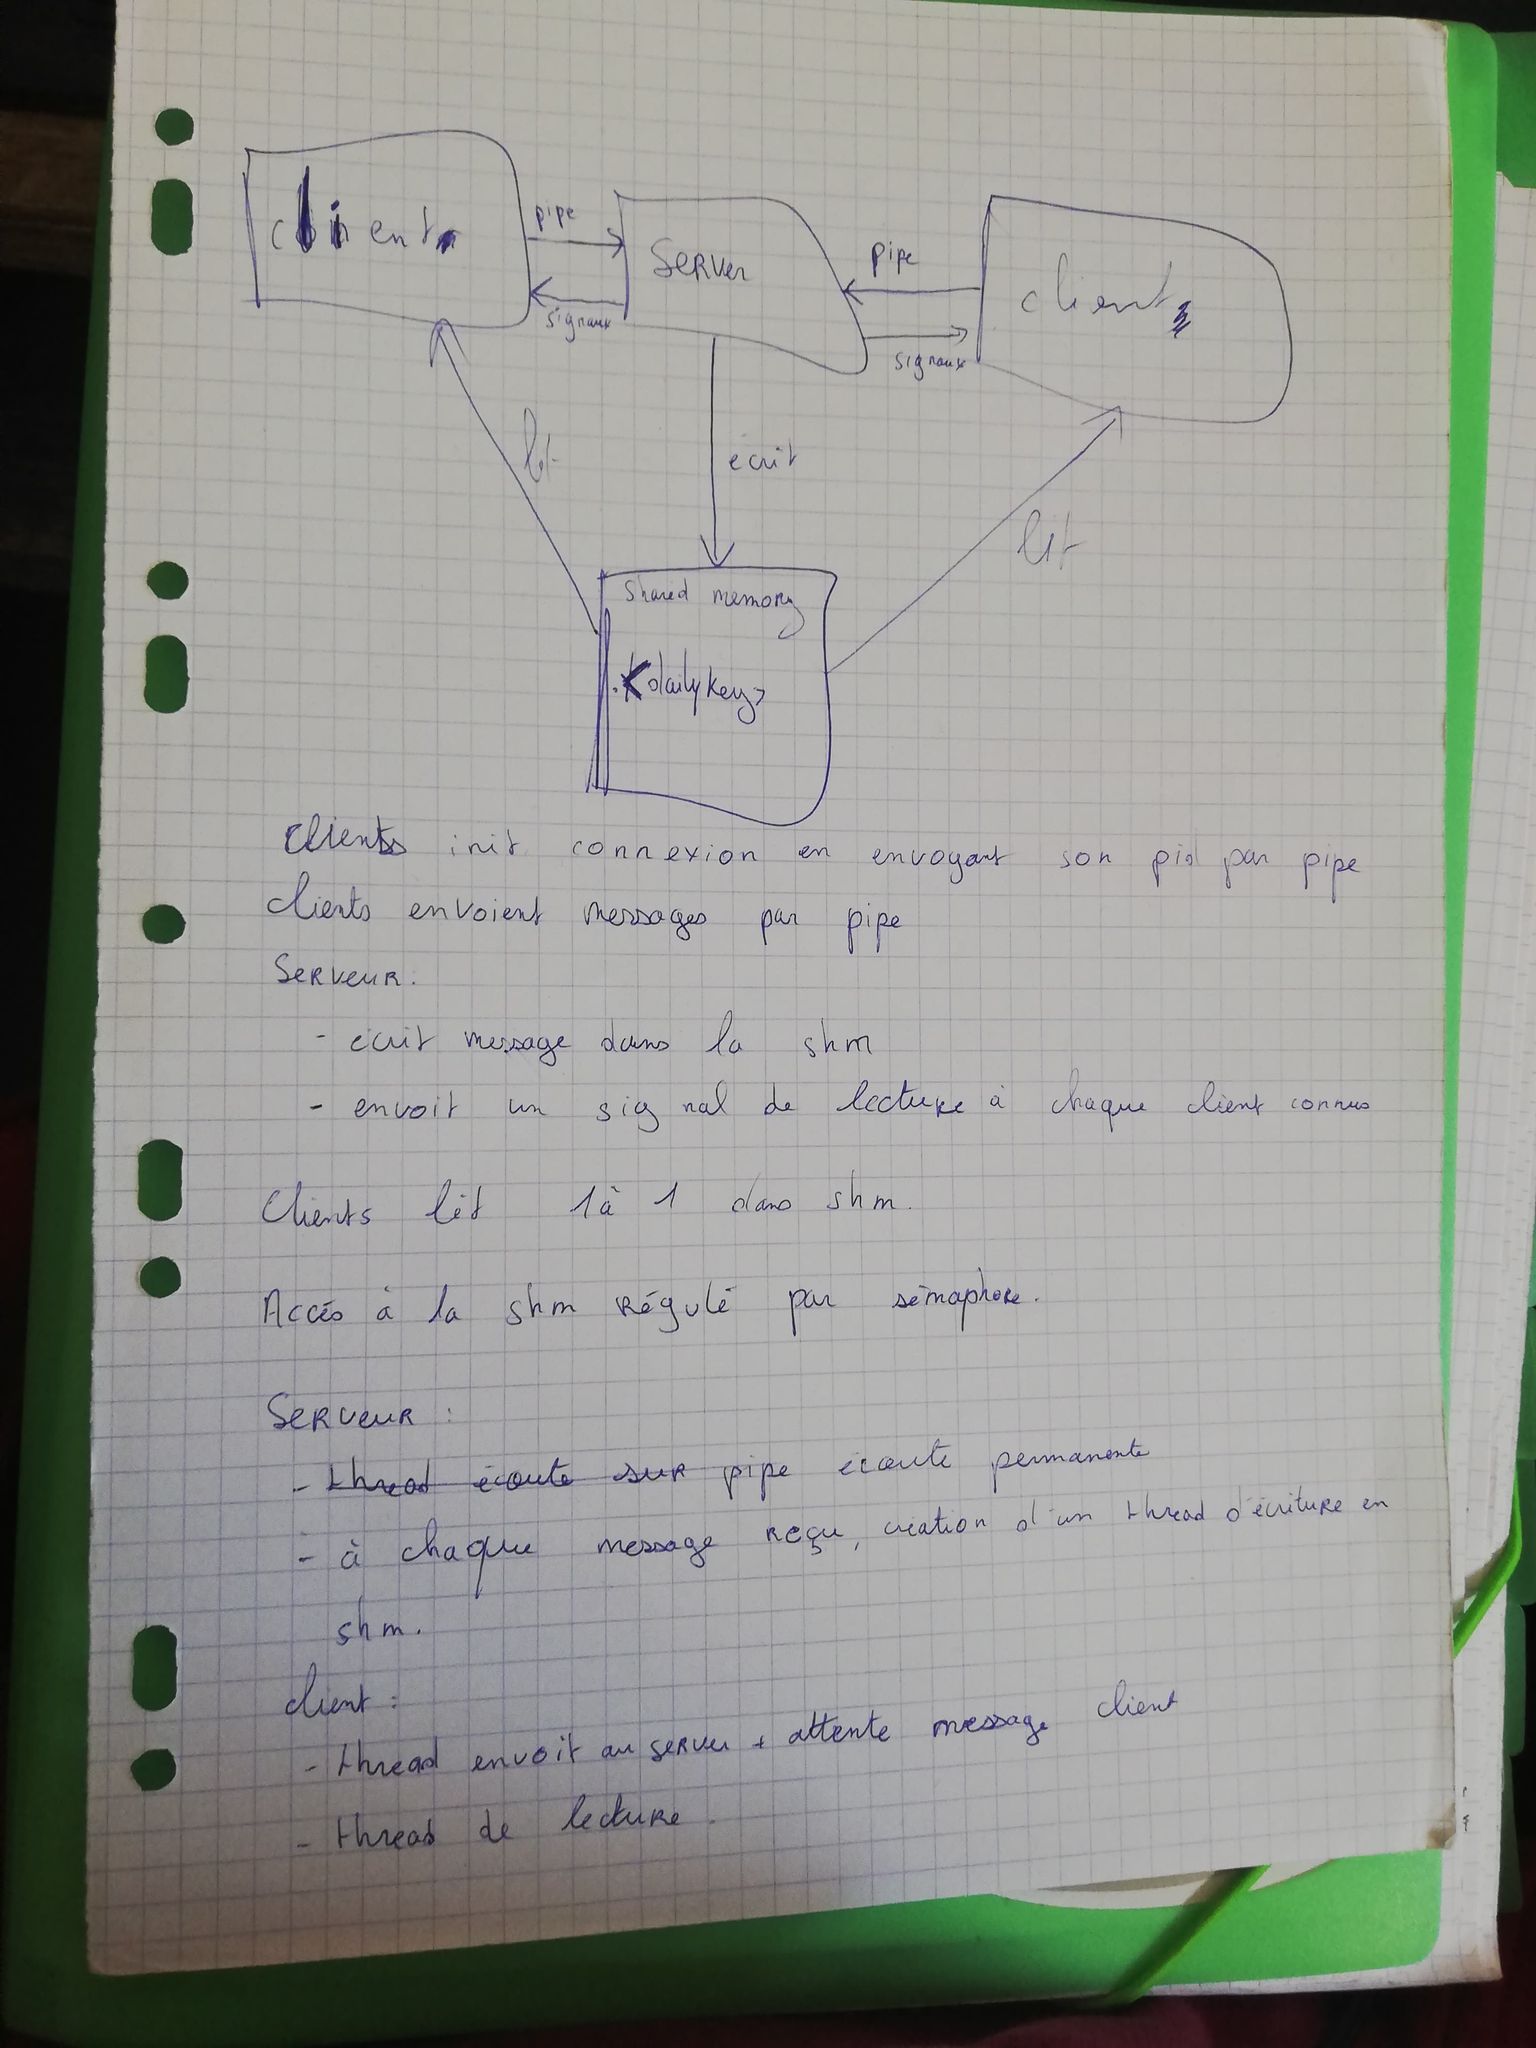 client
pipe
Server
pipe
client
signaux
signaux
lit
écrit
lit
Shared memory
<dailykey>
Clients init connexion en envoyant son pid par pipe
clients envoient messages par pipe
Serveur.
- écrit message dans la shm
- envoit un signal de lecture à chaque client connus
Clients lit 1 à 1 dans shm.
Accès à la shm régulé par sémaphore.
Serveur :
- thread écoute sur pipe écoute permanente
- à chaque message reçu, création d'un thread d'écriture en
shm.
client :
- thread envoit au server + attente message client
- thread de lecture.